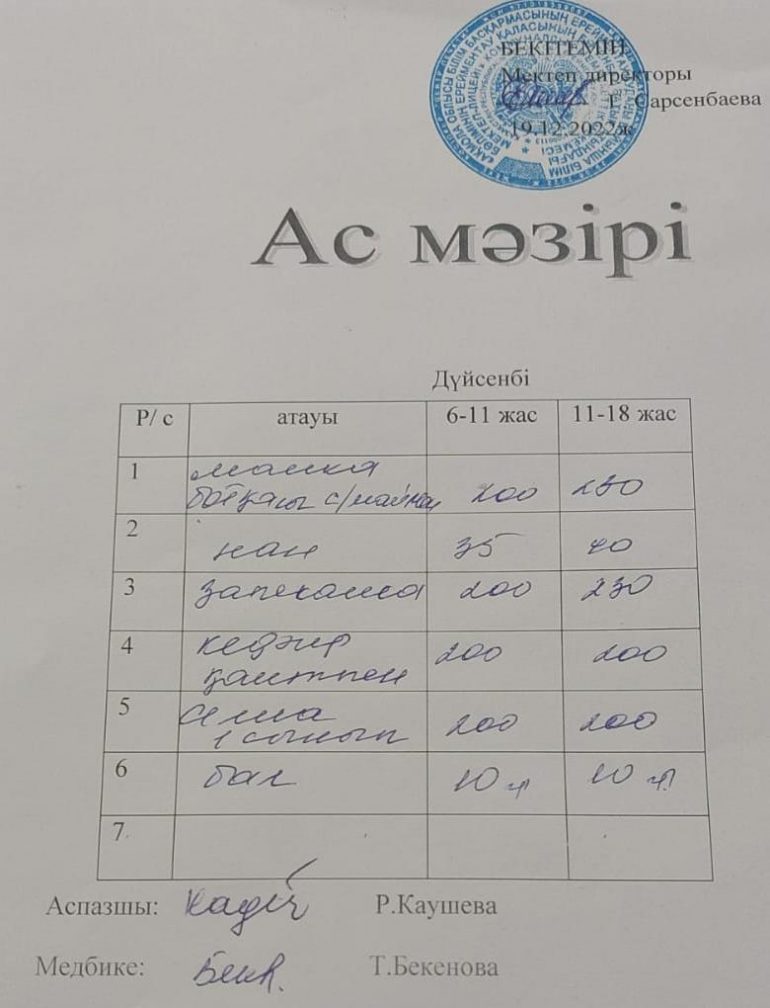 БЕКІТЕМІН
Мектеп директоры
Т. Сарсенбаева
19.12.2022ж
Ас мәзірі
Дүйсенбі
Р/ с атауы 6-11 жас 11-18 жас
1 манка
ботқасы с/маймен 200 230
2 нан 35 40
3 запеканка 200 230
4 кефир
қантпен 200 200
5 алма
1 сынып 200 200
6 бал 10 10
7.
Аспазшы: Р.Каушева
Медбике: Т.Бекенова